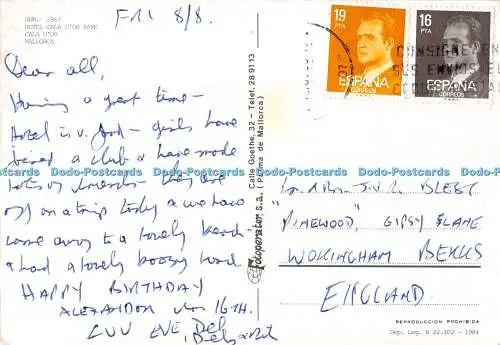 NUM. 2867
HOTEL CALA D'OR PARK
CALA D'OR
MALLORCA
FRI 8/8.
Dear all,
Having a great time -
Hotel is v. good - girls have
joined a club & have made
lots of friends - they are
off on a trip today & we have
come away to a lovely beach
& had a lovely boozy
HAPPY BIRTHDAY
16TH.
LUV EVE, Del
Fotoperator s.a. Calle Goethe, 32 - Telef. 28 91 13
(Palma de Mallorca)
19
PTA
ESPAÑA
CORREOS
16
PTA
ESPAÑA
CORREOS
CONSIGNE EN
SUS ENVIOS EL
"PINEWOOD", GIPSY LANE
WOKINGHAM BERKS
ENGLAND
REPRODUCCION PROHIBIDA
Dep. Leg. B 22.102 - 1984
Dodo-Postcards Dodo-Postcards Dodo-Postcards Dodo-Postcards